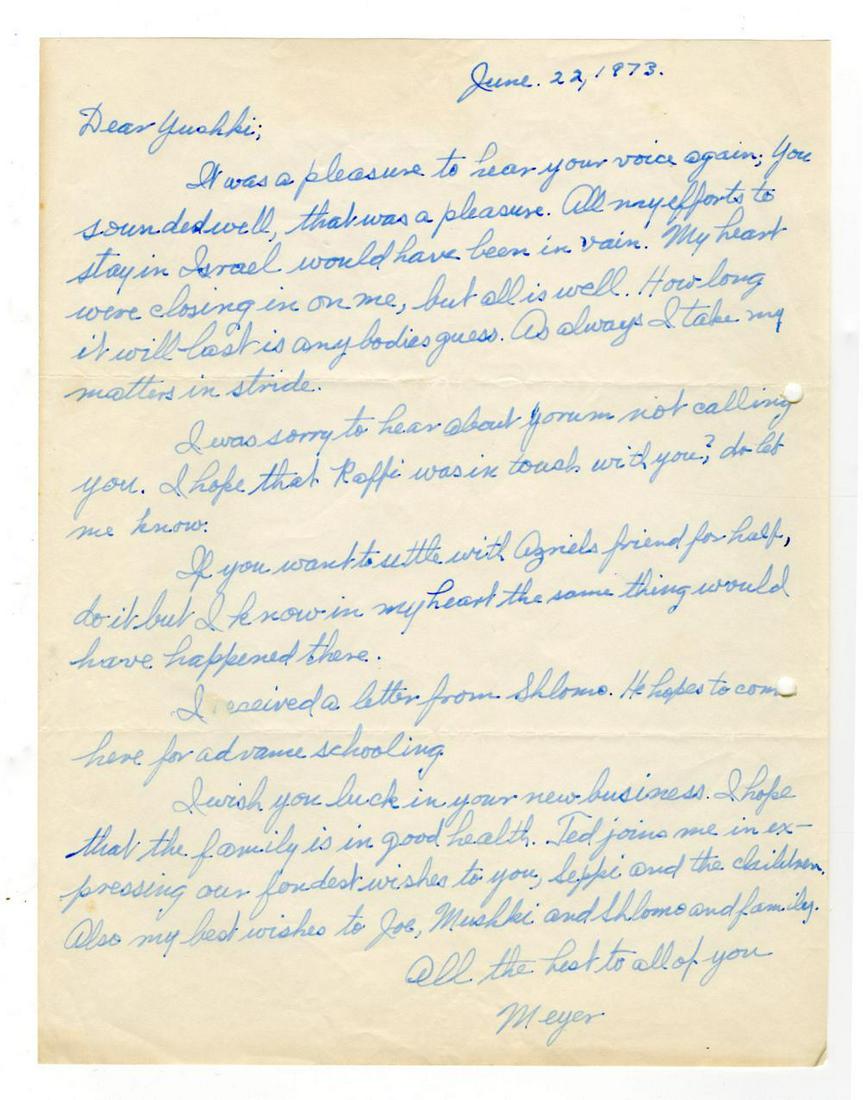 June. 22, 1973.
Dear Yushki;
It was a pleasure to hear your voice again; You
sounded well, that was a pleasure. All my efforts to
stay in Israel would have been in vain. My heart
were closing in on me, but all is well. How long
it will last is any bodies guess. As always I take my
matters in stride.
I was sorry to hear about Yorum not calling
you. I hope that Raffi was in touch with you? do let
me know.
If you want to settle with Azriels friend for half,
do it but I know in my heart the same thing would
have happened there.
I received a letter from Shlomo. He hopes to come
here for advance schooling
I wish you luck in your new business. I hope
that the family is in good health. Ted joins me in ex-
pressing our fondest wishes to you, Seppi and the children.
Also my best wishes to Joe, Mushki and Shlomo and family.
All the best to all of you
Meyer